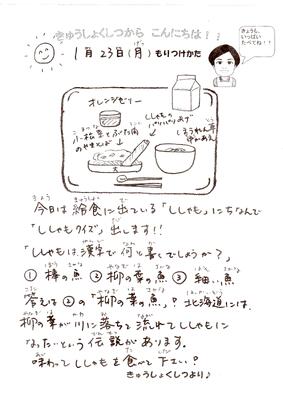 きゅうしょくしつから こんにちは!!
1月23日(月) もりつけかた
きょうも、
いっぱい
たべてね!!
オレンジゼリー
ししゃもの
パリパリあげ
小松菜とぶた肉
のやきそば
ほうれん草
今日は給食に出ている「ししゃも」にちなんで
「ししゃもクイズ」出します!!
「ししゃもは漢字で何と書くでしょうか?」
① 樺の魚 ② 柳の葉の魚 ③ 細い魚
答えは②の「柳の葉の魚」? 北海道には、
柳の葉が川に落ちて流れてししゃもに
なった…という伝説があります。
味わってししゃもを食べて下さい?
きゅうしょくしつより♪